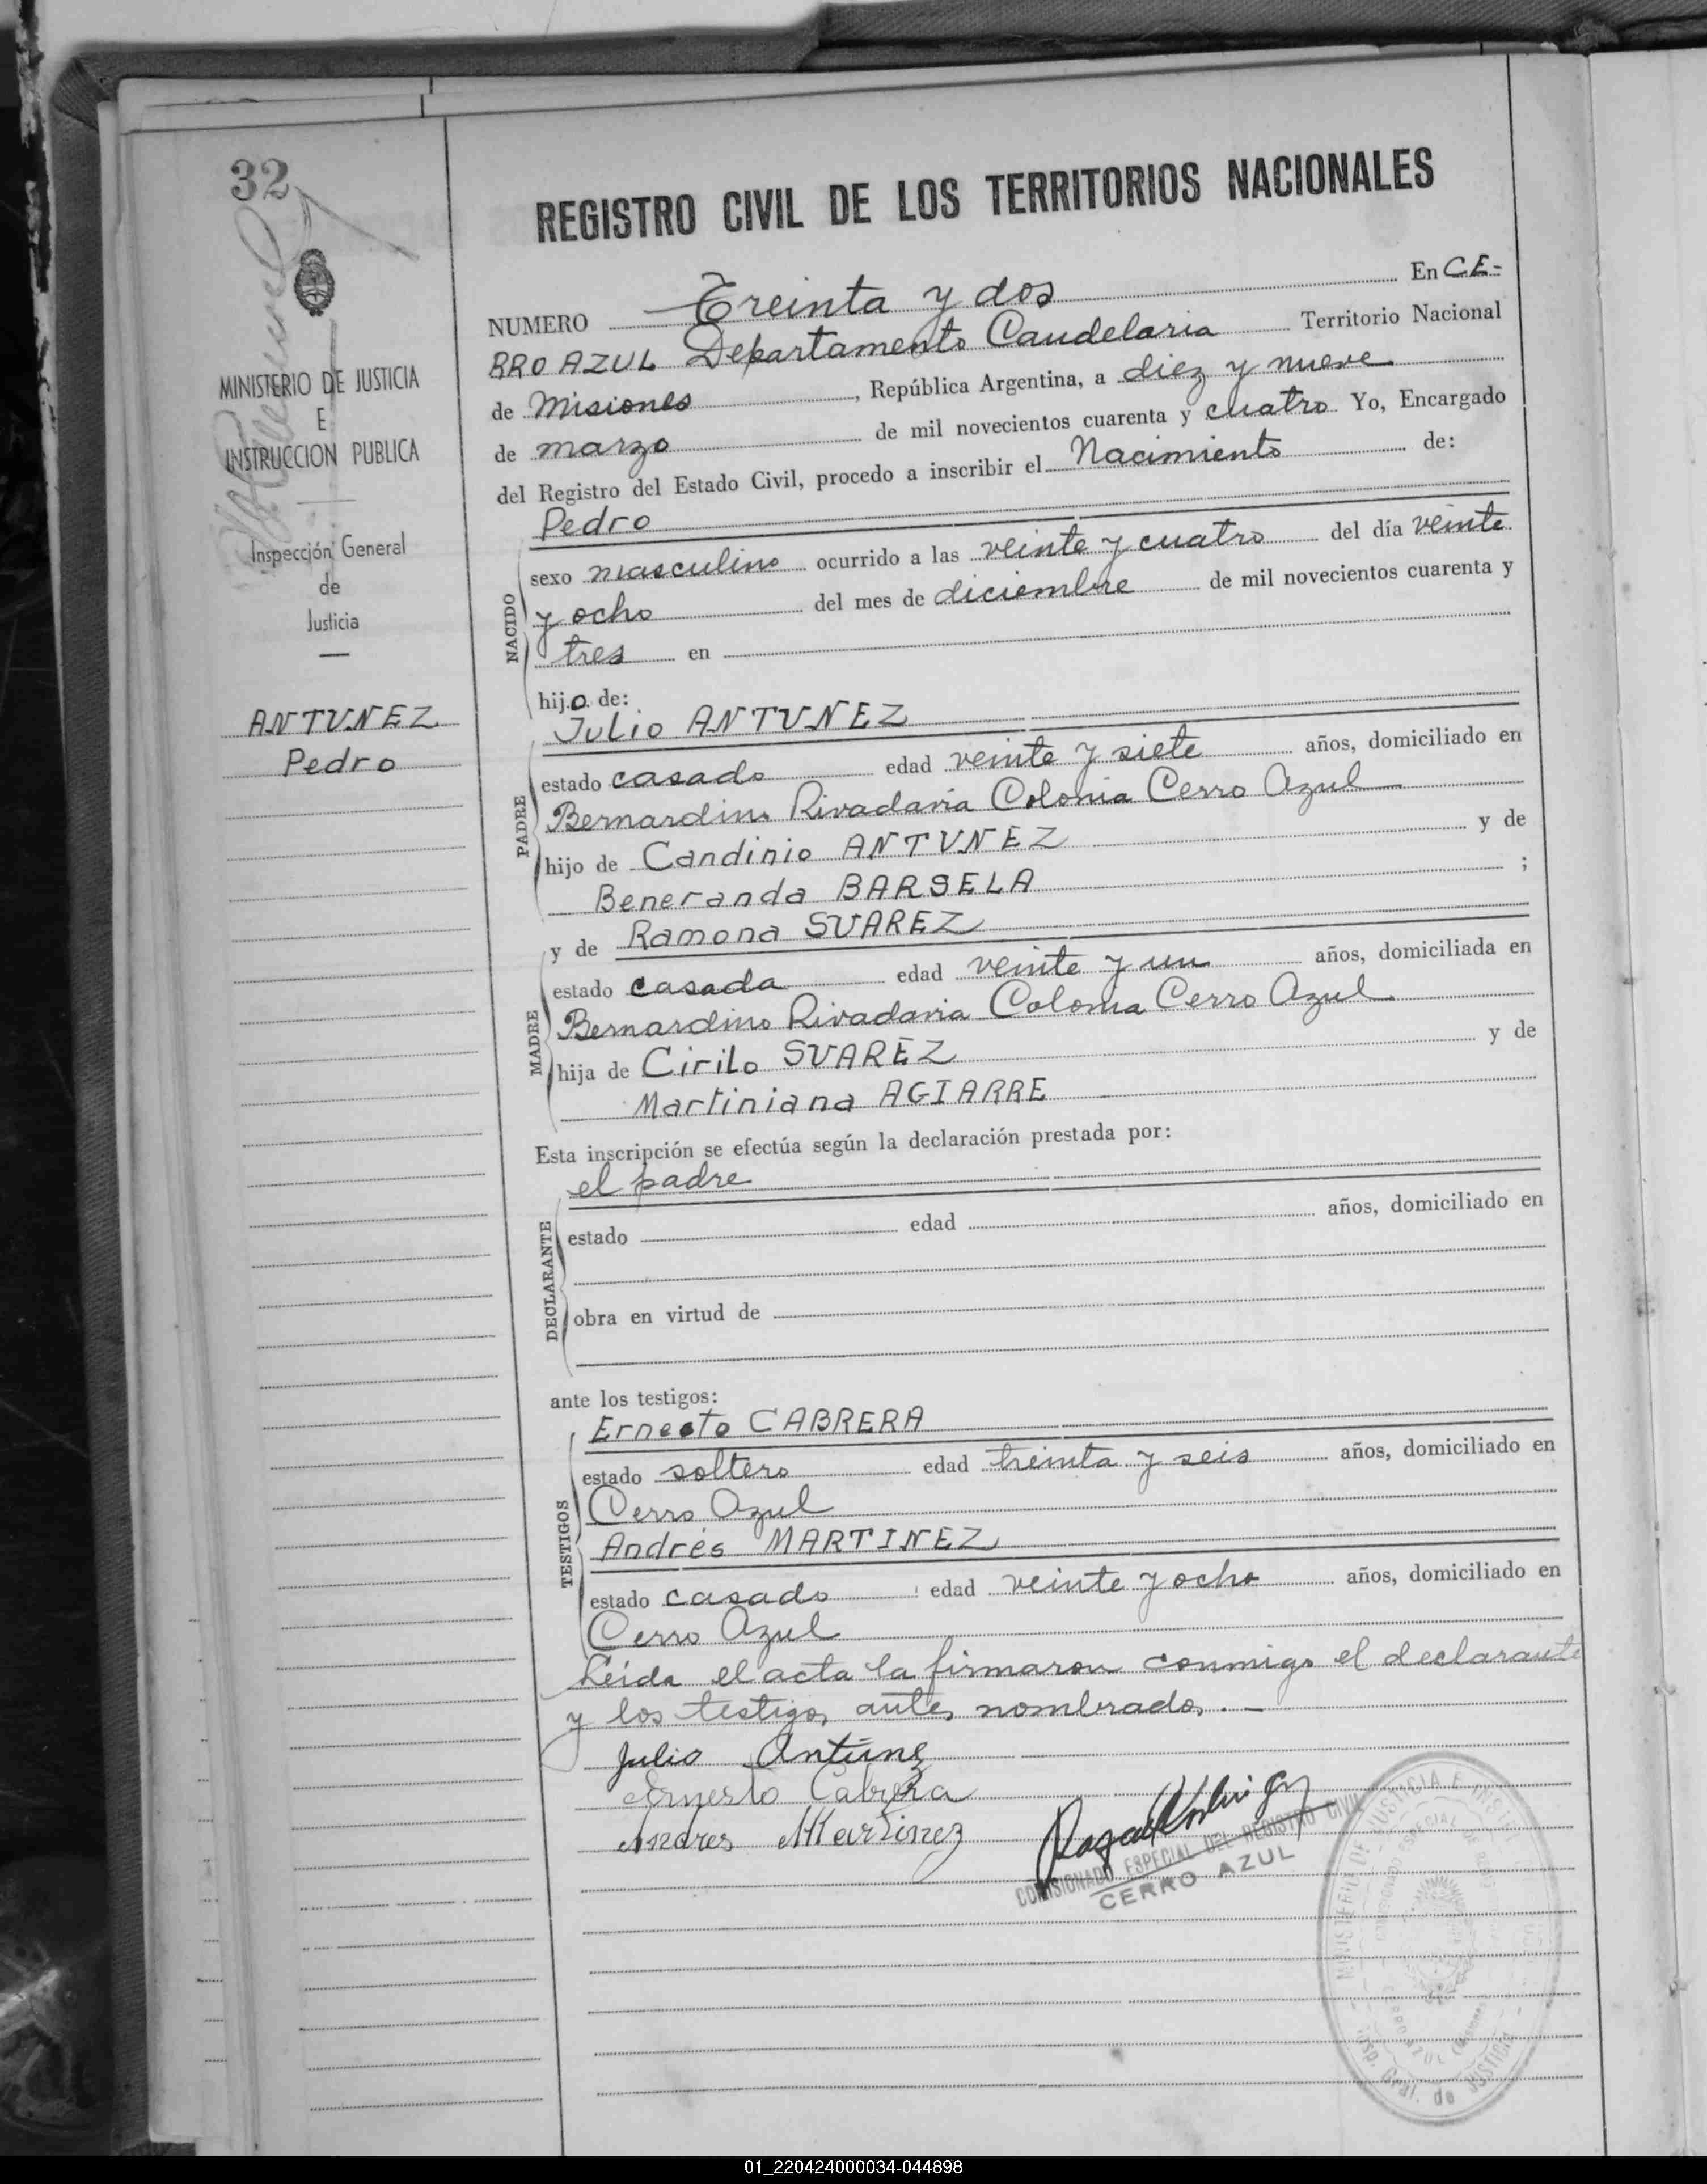 32
MINISTERIO DE JUSTICIA
E
INSTRUCCION PUBLICA
Inspección General
de
Justicia
ANTUNEZ
Pedro
REGISTRO CIVIL DE LOS TERRITORIOS NACIONALES
NUMERO Treinta y dos En CE-
RRO AZUL Departamento Candelaria Territorio Nacional
de Misiones, República Argentina, a diez y nueve
de marzo de mil novecientos cuarenta y cuatro Yo, Encargado
del Registro del Estado Civil, procedo a inscribir el Nacimiento de:
NACIDO
Pedro
sexo masculino ocurrido a las veinte y cuatro del día veinte
y ocho del mes de diciembre de mil novecientos cuarenta y
tres en
hijo de:
PADRE
Julio ANTUNEZ
estado casado edad veinte y siete años, domiciliado en
Bernardino Rivadavia Colonia Cerro Azul
hijo de Candinio ANTUNEZ y de
Beneranda BARSELA ;
MADRE
y de Ramona SUAREZ
estado casada edad veinte y un años, domiciliada en
Bernardino Rivadavia Colonia Cerro Azul
hija de Cirilo SUAREZ y de
Martiniana AGIARRE
Esta inscripción se efectúa según la declaración prestada por:
DECLARANTE
el padre
estado edad años, domiciliado en
obra en virtud de
ante los testigos:
TESTIGOS
Ernesto CABRERA
estado soltero edad treinta y seis años, domiciliado en
Cerro Azul
Andrés MARTINEZ
estado casado edad veinte y ocho años, domiciliado en
Cerro Azul
Leída el acta la firmaron conmigo el declarante
y los testigos antes nombrados.-
Julio Antúnez
Ernesto Cabrera
Andres Martinez
COMISIONADO ESPECIAL DEL REGISTRO CIVIL
CERRO AZUL
MINISTERIO DE JUSTICIA E
Insp. Gral. de JUSTICIA
01_220424000034-044898